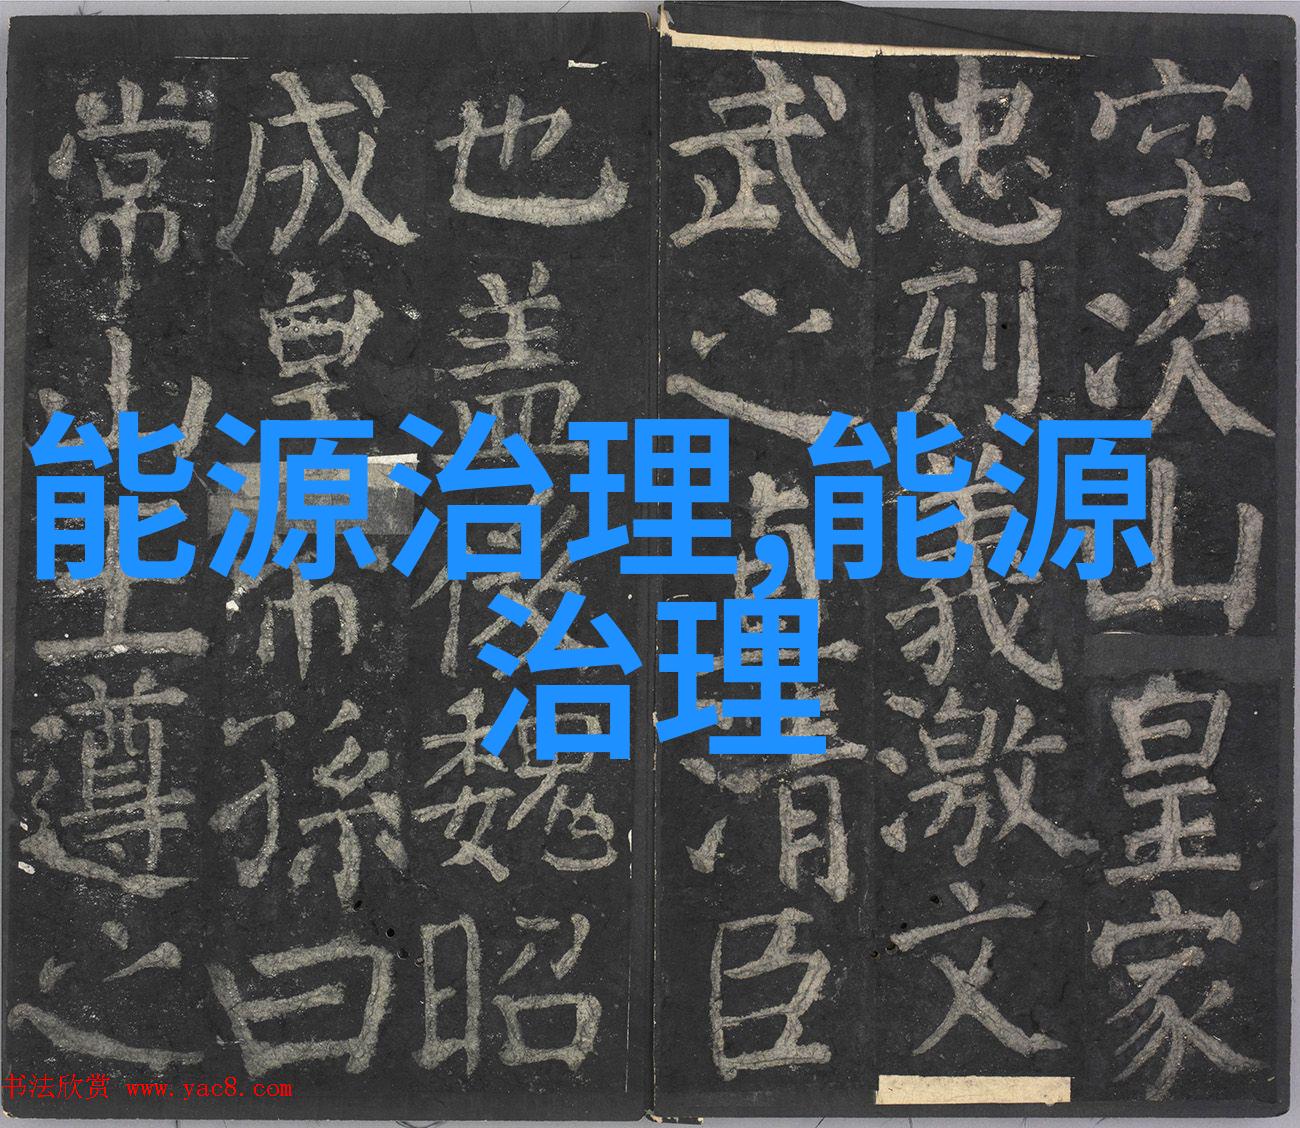 字次山皇家
忠烈義激文
武之直清臣
也盖後魏昭
成皇帝孫曰
常山王遵之
能源治理,能源
治理
书法欣赏 www.yac8.com